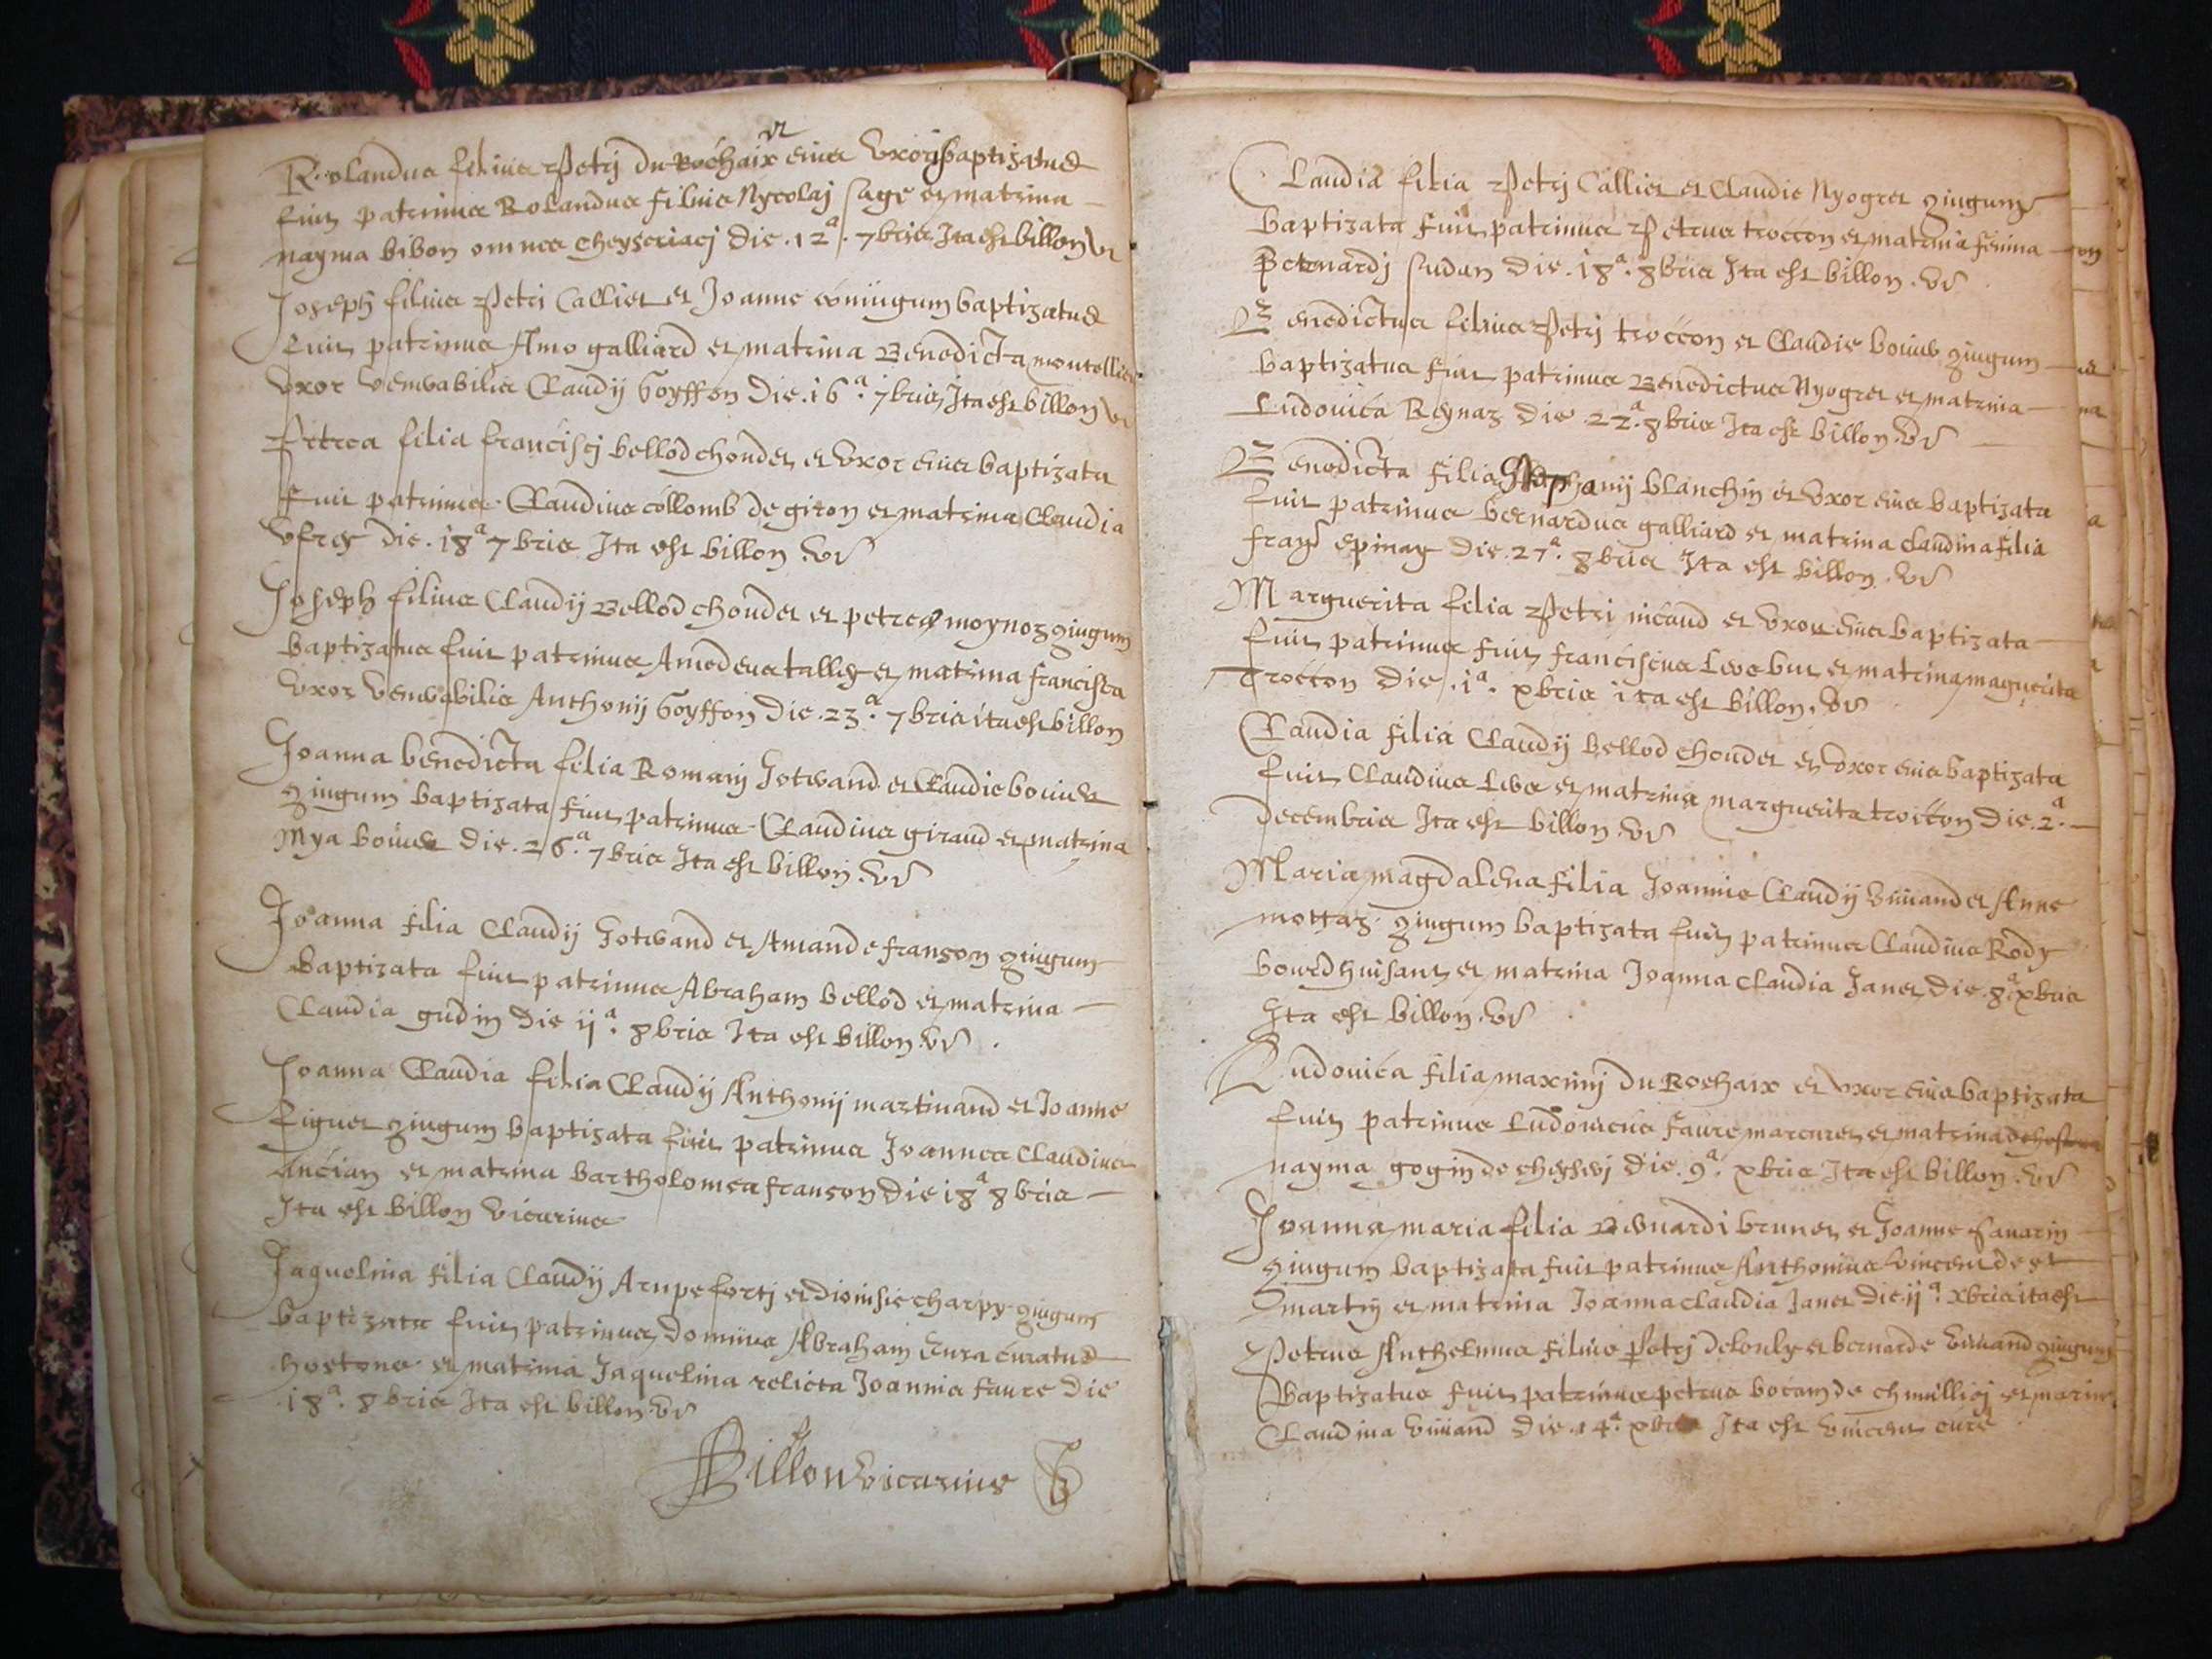 et
Rolandus filius Petri du Rochaix eius uxoris baptizatus
fuit patrinus Rolandus filius Nycolaj sage et matrina
nayma bibon omnes cheyseriaci die .12a. 7bris Ita est billon vi
Joseph filius Petri Callier et Joanne coniugum baptizatus
fuit patrinus Amo galliard et matrina Benedicta montellier
uxor venerabilis Claudij Goyffon die .16a. 7bris Ita est billon vi
Petrea filia francisci bellod chonder et uxor eius baptizata
fuit patrinus Claudius collomb de giron et matrina Claudia
die .18a 7bris Ita est billon .vi
Joseph filius Claudij Bellod chonder et petree moynoz giugum
baptizatus fuit patrinus Amedeus talley et matrina francisca
uxor venerabilis Anthonij Goyffon die .23a. 7bris ita est billon
Joanna benedicta filia Romanj Joterand et Claudie bouier
giugum baptizata fuit patrinus Claudius giraud et matrina
Mya bouier die .26a. 7bris Ita est billon .vi
Joanna filia Claudij Joterand et Amande franson giugum
baptizata fuit patrinus Abraham bellod et matrina
Claudia gudin die ija. 8bris Ita est billon .vi
Joanna Claudia filia Claudij Anthonij martinand et Joanne
figuet giugum baptizata fuit patrinus Joannes Claudius
ancian et matrina bartholomea franson die 18a 8bris
Ita est billon vicarius
Jaquelina filia Claudij Arupeforti et dionisie charpy giugum
baptizata fuit patrinus dominus Abraham Cura curatus
hostone et matrina Jaquelina relicta Joannis faure die
.18a. 8bris Ita est billon .vi
Billon vicarius
Claudia filia Petri Callier et Claudie Nyogret giugum
baptizata fuit patrinus Petrus troccon et matrina femina
Bernardj sudan die .18a. 8bris Ita est billon .vi
Benedictus filius Petrj troccon et Claudie bouier giugum
baptizatus fuit patrinus Benedictus Nyogret et matrina
Ludouica Reynaz die .22a. 8bris Ita est billon .vi
Benedicta filia Stephanij blanchin et uxor eius baptizata
fuit patrinus bernardus galliard et matrina claudina filia
epinay die .27a. 8bris Ita est billon .vi
Marguerita filia Petri nicaud et uxor eius baptizata
fuit patrinus fuit franciscus et matrina maguerita
Troccon die .ia. xbris ita est billon .vi
Claudia filia Claudij bellod chonder et uxor eius baptizata
fuit Claudius et matrina marguerita troccon die .2a.
decembris Ita est billon .vi
Maria magdalena filia Joannis Claudij viuand et Anne
mottaz giugum baptizata fuit patrinus Claudius Rody
et matrina Joanna Claudia Janet die .8a xbris
Ita est billon .vi
Ludouica filia maximj du Rochaix et uxor eius baptizata
fuit patrinus Ludouicus faure marcuret et matrina
nayma gogin de die .9a. xbris Ita est billon .vi
Joanna maria filia Bernardi brunet et Joanne sauarin
giugum baptizata fuit patrinus Anthonius vincent de st
martin et matrina Joanna claudia Janet die ija. xbris ita est
Petrus Anthelmus filius Petrj delonly et bernarde viuand giugum
baptizatus fuit patrinus petrus bocam de et
Claudina viuand die .14a. xbris Ita est vincent cure